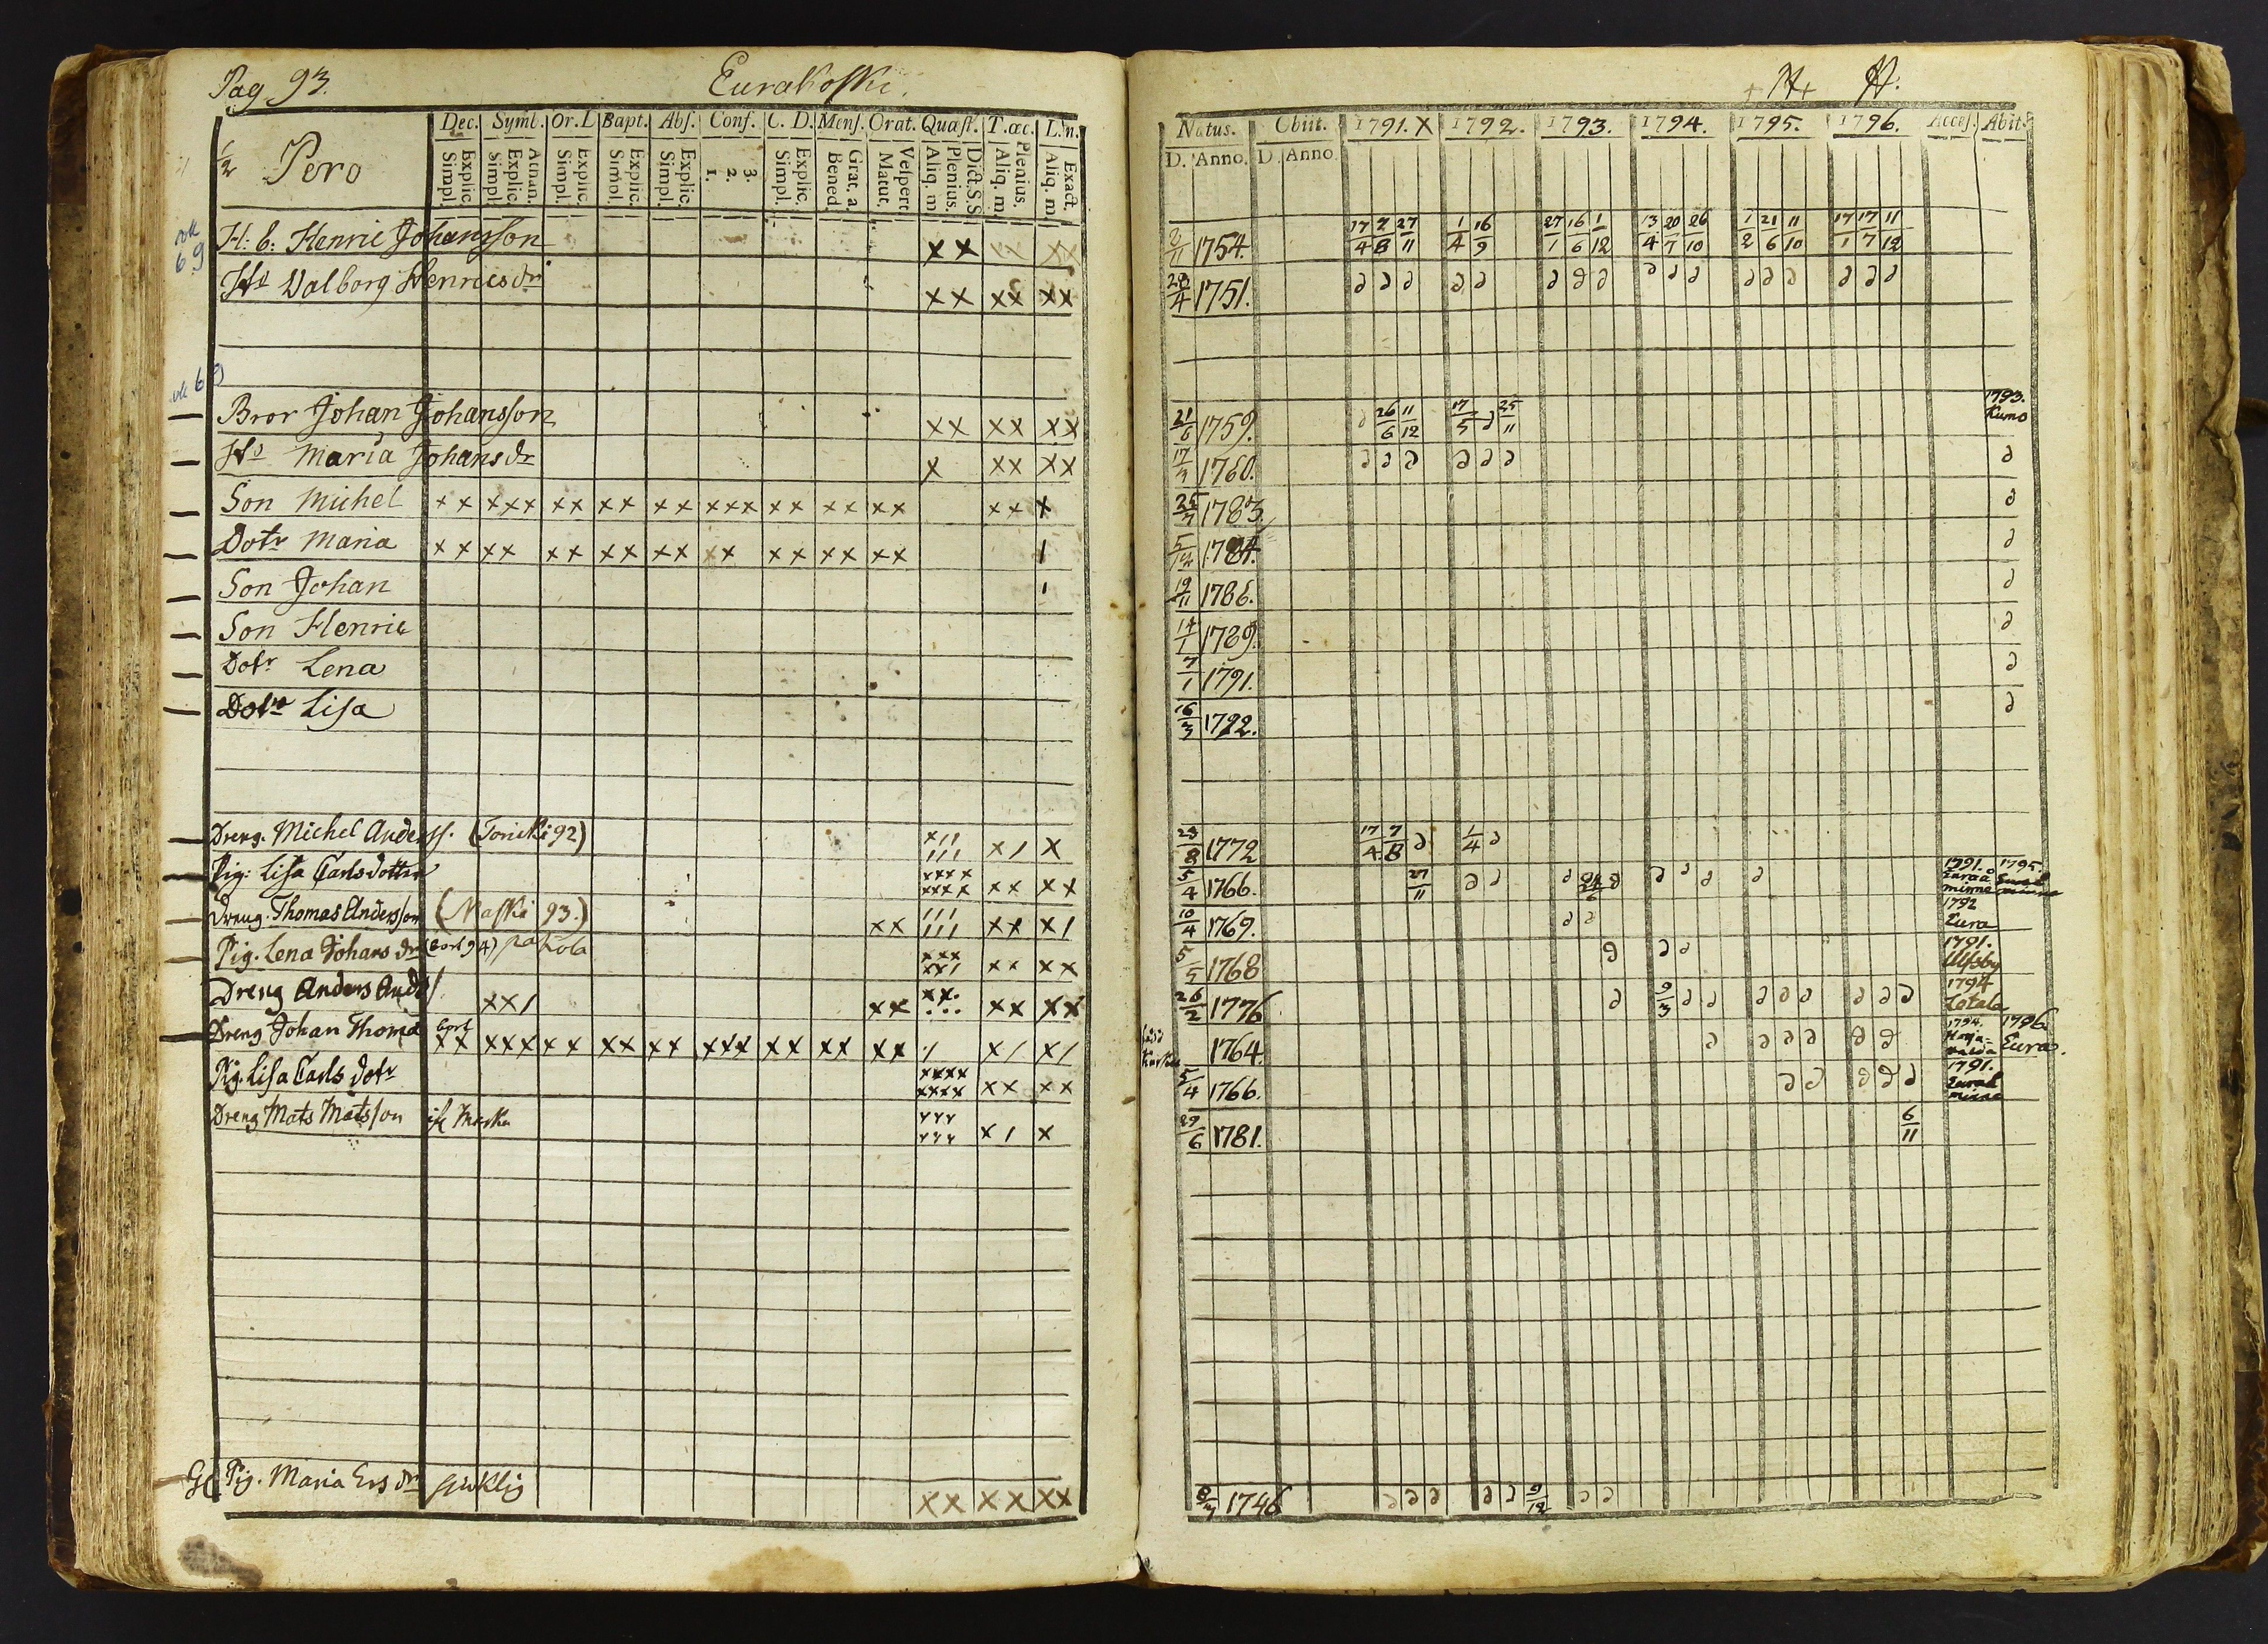 Pag 93. Eurakoski.
Dec. Symb. Or. D. Bapt. Abs. Conf. C. D. Mens. Orat. Quæst. T. œc. L. n.
½ Pero
Explic. Simpl. Athan. Explic. Simpl. Explic. Simpl. Explic. Simpl. Explic. Simpl. 3. 2. 1. Explic. Simpl. Grat. a. Bened. Vespert. Matut. Dict. S.S. Plenius. Aliq. m. Plenius. Aliq. m. Exact. Aliq. m.
H: b: Henric Johansson xx xx xx
69
Hu Valborg Henricsdr xx xx xx
Bror Johan Johansson xx xx xx
Hu Maria Johansdr x xx xx
Son Michel xx xxx xx xx xx xxx xx xx xx xx x
Dotr Maria xx xx xx xx xx xx xx xx xx 1
Son Johan 1
Son Henric
Dotr Lena
Dotr Lisa
Dreng. Michel Anderss. (Toricki 92) x1 x
Pig: Lisa Carlsdotter xxxx xxxx xx xx
Dreng. Thomas Andersson (Naski 93.) xx 111 111 xx x1
Pig. Lena Johans dr xx xx
Dreng Anders And xx1 xx xx xx
Dreng Johan Thoma xx xxx xx xx xx xxx xx xx xx x1 x1
Pig. Lisa Carls dotr xxxx xxxx xx xx
Dreng Mats Matsson x1 x
Pig. Maria Ers dr sjuklig xx xx xx
Natus. Obiit. 1791. X 1792. 1793. 1794. 1795. 1796. Access. Abit.
D. Anno. D. Anno.
2/11 1754. 17/4 7/8 27/11 1/4 16/9 27/1 16/6 1/12 13/4 20/7 26/10 1/2 21/6 11/10 17/1 17/7 11/12
28/4 1751. ∂ ∂ ∂ ∂ ∂ ∂ ∂ ∂ ∂ ∂ ∂ ∂ ∂ ∂ ∂ ∂ ∂
21/6 1759. ∂ 26/6 11/12 17/5 ∂ 25/11 1793. Kumo
17/3 1760. ∂ ∂ ∂ ∂ ∂ ∂ ∂
25/7 1783. ∂
5/12 1784. ∂
19/11 1786. ∂
14/1 1789. ∂
7/1 1791. ∂
16/3 1792. ∂
23/8 1772 17/4 7/8 ∂ 1/4 ∂
5/4 1766. 27/11 ∂ ∂ ∂ ∂ ∂ ∂ ∂ ∂ 1791. 1795.
10/4 1769. ∂ ∂ 1792 Eura
5/5 1768 ∂ ∂ ∂ 1791. Ulfsby
26/2 1776 ∂ 9/3 ∂ ∂ ∂ ∂ ∂ ∂ ∂ ∂ 1794 Letala
1764. ∂ ∂ ∂ ∂ ∂ ∂ 1794. Harjavalda 1796 Eura.
5/4 1766. ∂ ∂ ∂ ∂ ∂ 1791.
29/6 1781. 6/11
8/7 1746 ∂ ∂ ∂ ∂ ∂ 9/12 ∂ ∂